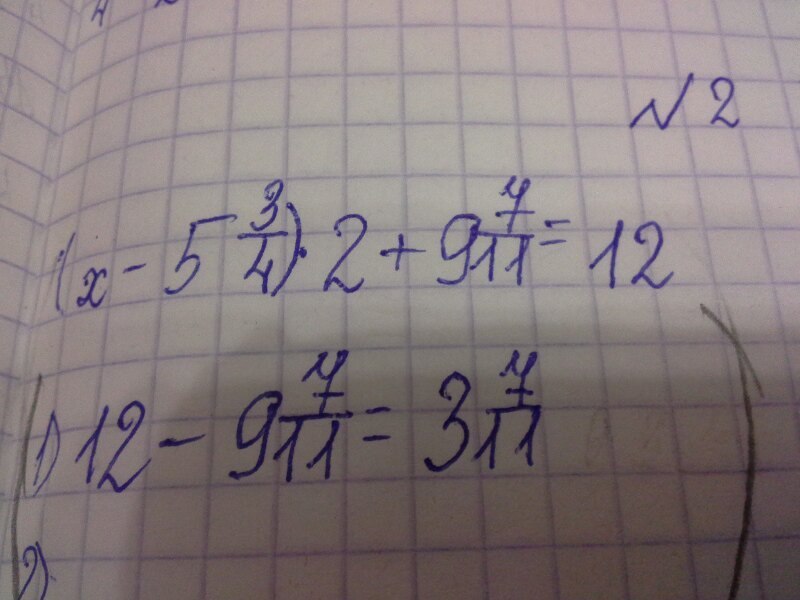 № 2
(x - 5 3/4) · 2 + 9 7/11 = 12
1) 12 - 9 7/11 = 3 7/11
2)